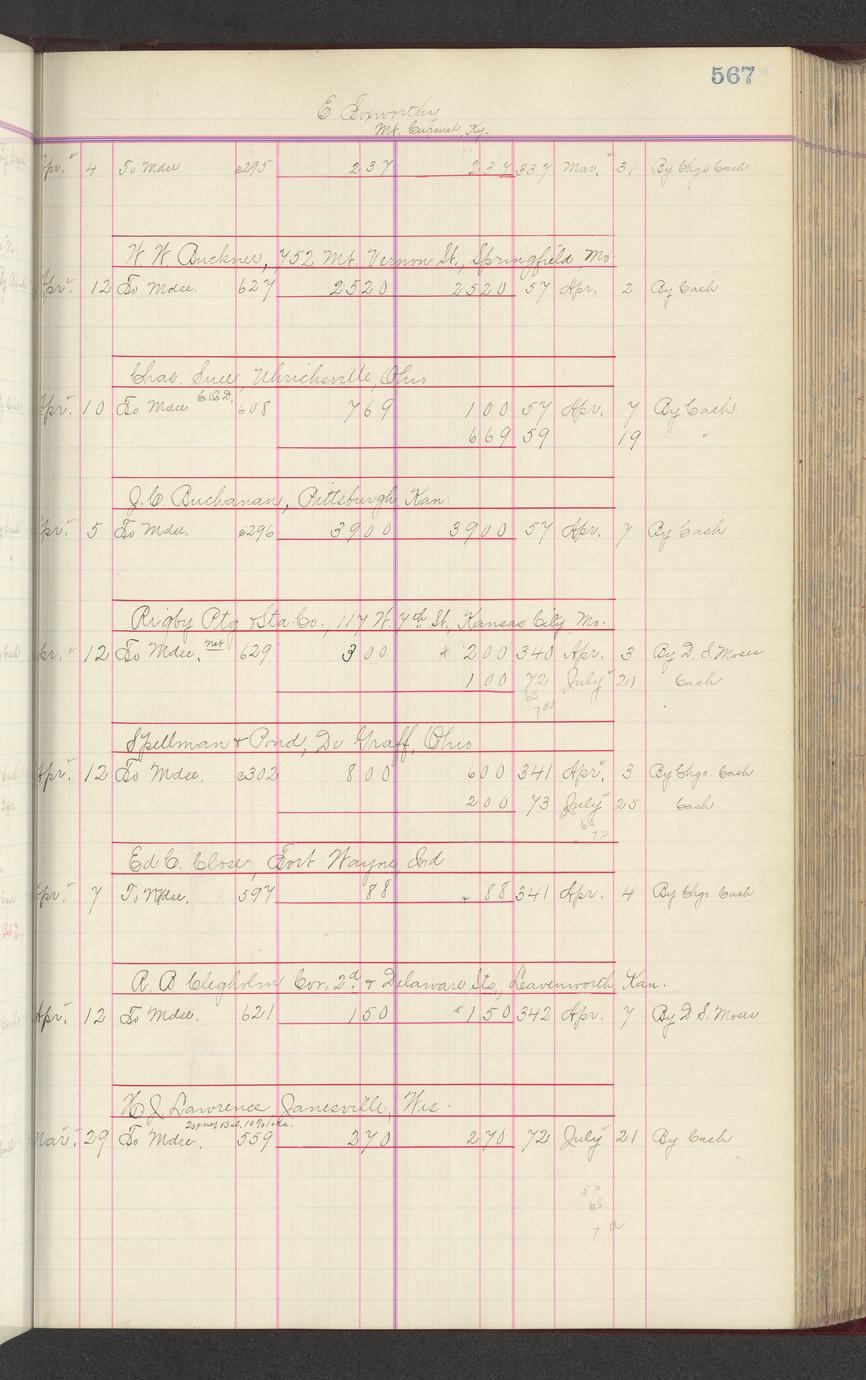 567
E. Foxworthy
Mt. Carmel, Ky.
Apr. 4 To Mdse c295 237 237 337 Mar. 31 By Chgs Cash
W. W. Buckner, 752 Mt. Vernon St., Springfield Mo
Apr. 12 To Mdse. 627 2520 2520 57 Apr. 2 By Cash
Uhrichsville, Ohio
Apr. 10 To Mdse C.O.D. 608 769 100 57 Apr. 7 By Cash
669 59 19 "
J. C. Buchanan, Pittsburgh, Kan.
Apr. 5 To Mdse. c296 3900 3900 57 Apr. 7 By Cash
Rigby Ptg & Sta Co., 117 W. 7th St., Kansas City Mo.
Apr. 12 To Mdse. net 629 300 200 340 Apr. 3 By D. S. Moses
100 72 July 21 Cash
65
70
Spellman & Pond, De Graff, Ohio
Apr. 12 To Mdse. c302 800 600 341 Apr. 3 By Chgs. Cash
200 73 July 25 Cash
Ed C. Close, Fort Wayne, Ind
Apr. 7 To Mdse. 597 88 88 341 Apr. 4 By Chgs. Cash
R. B. Clegholm Cor. 2d & Delaware Sts, Leavenworth, Kan.
Apr. 12 To Mdse. 621 150 150 342 Apr. 7 By D. S. Moses
H. J. Lawrence, Janesville, Wis.
Mar. 29 To Mdse. 559 270 270 72 July 21 By Cash
50
65